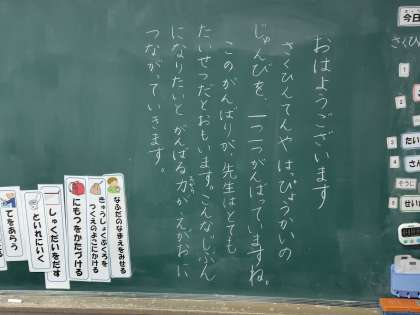 おはようございます
さくひんてんや はっぴょうかいの
じゅんびを、一つ一つがんばっていますね。
このがんばりが、先生はとても
たいせつだとおもいます。こんなじぶん
になりたいと がんばる力が えがおに
つながっていきます。
なふだのなまえをみせる
きゅうしょくぶくろを
つくえのよこにかける
にもつをかたづける
しゅくだいをだす
といれにいく
てをあらう
今日
さくひ
1
2
3
たい
4
さん
そうじ
5
せい